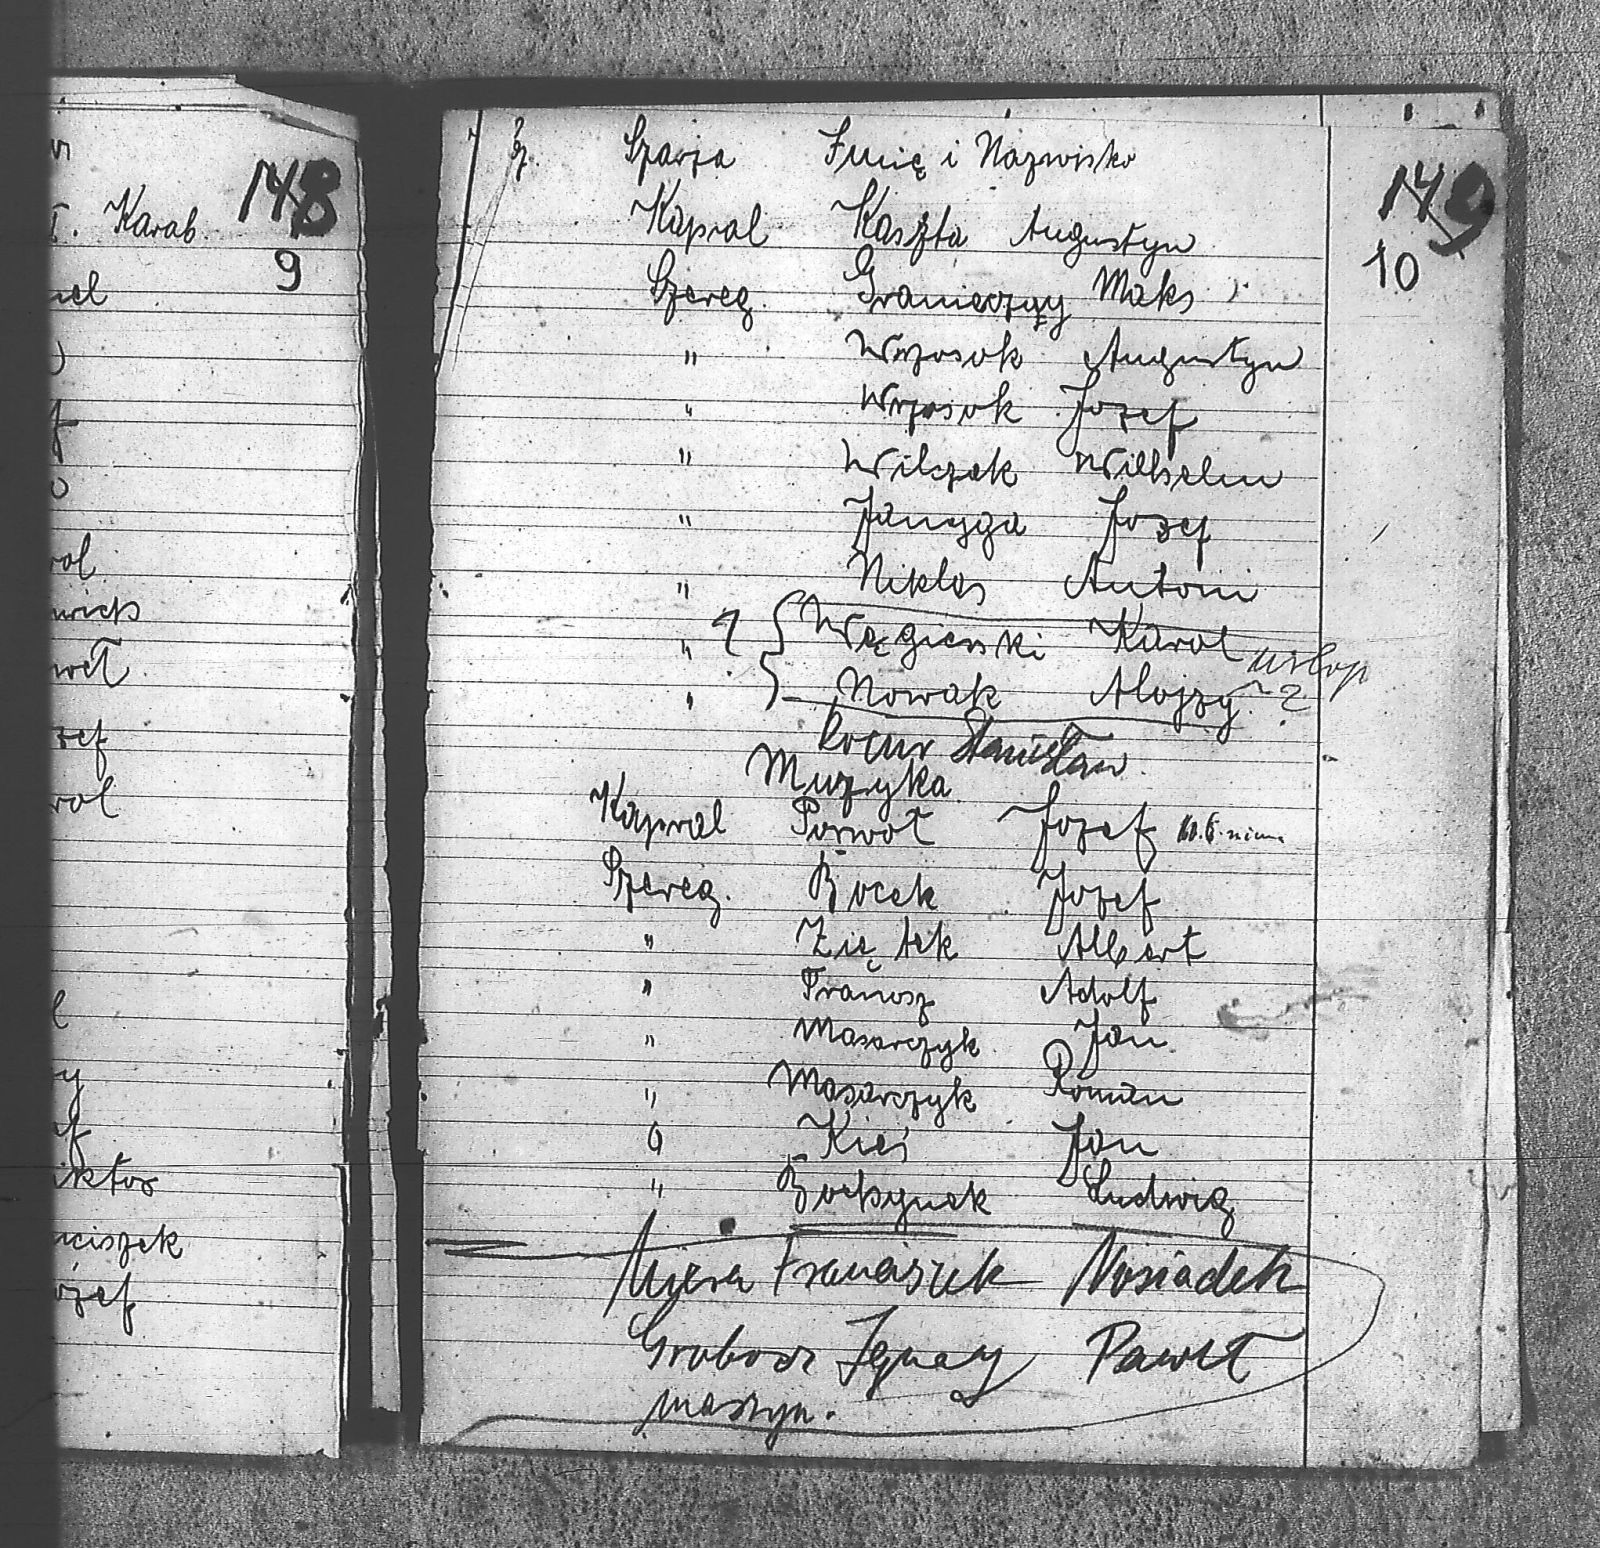 148
T. Karab.
9
nel
rol
zef
rol
iktor
ciszek
ózef
149
10
Szarża Imię i Nazwisko
Kapral Kaszta Augustyn
Szereg. Granieczny Maks
" Wrzosok Augustyn
" Wrzosok Jozef
" Wilczek Wilhelm
" Janyga Jozef
" Niklas Antoni
" Węgierski Karol urlop
" Nowak Alojzy 2
Kocur Stanisław
Muzyka
Kapral Porwoł Jozef
Szereg. Bocek Jozef
" Ziętek Albert
" Franosz Adolf
" Masarczyk Jan
" Masarczyk Roman
" Kieś Jan
" Ludwig
Franciszek Nosiadek
Ignacy Paweł